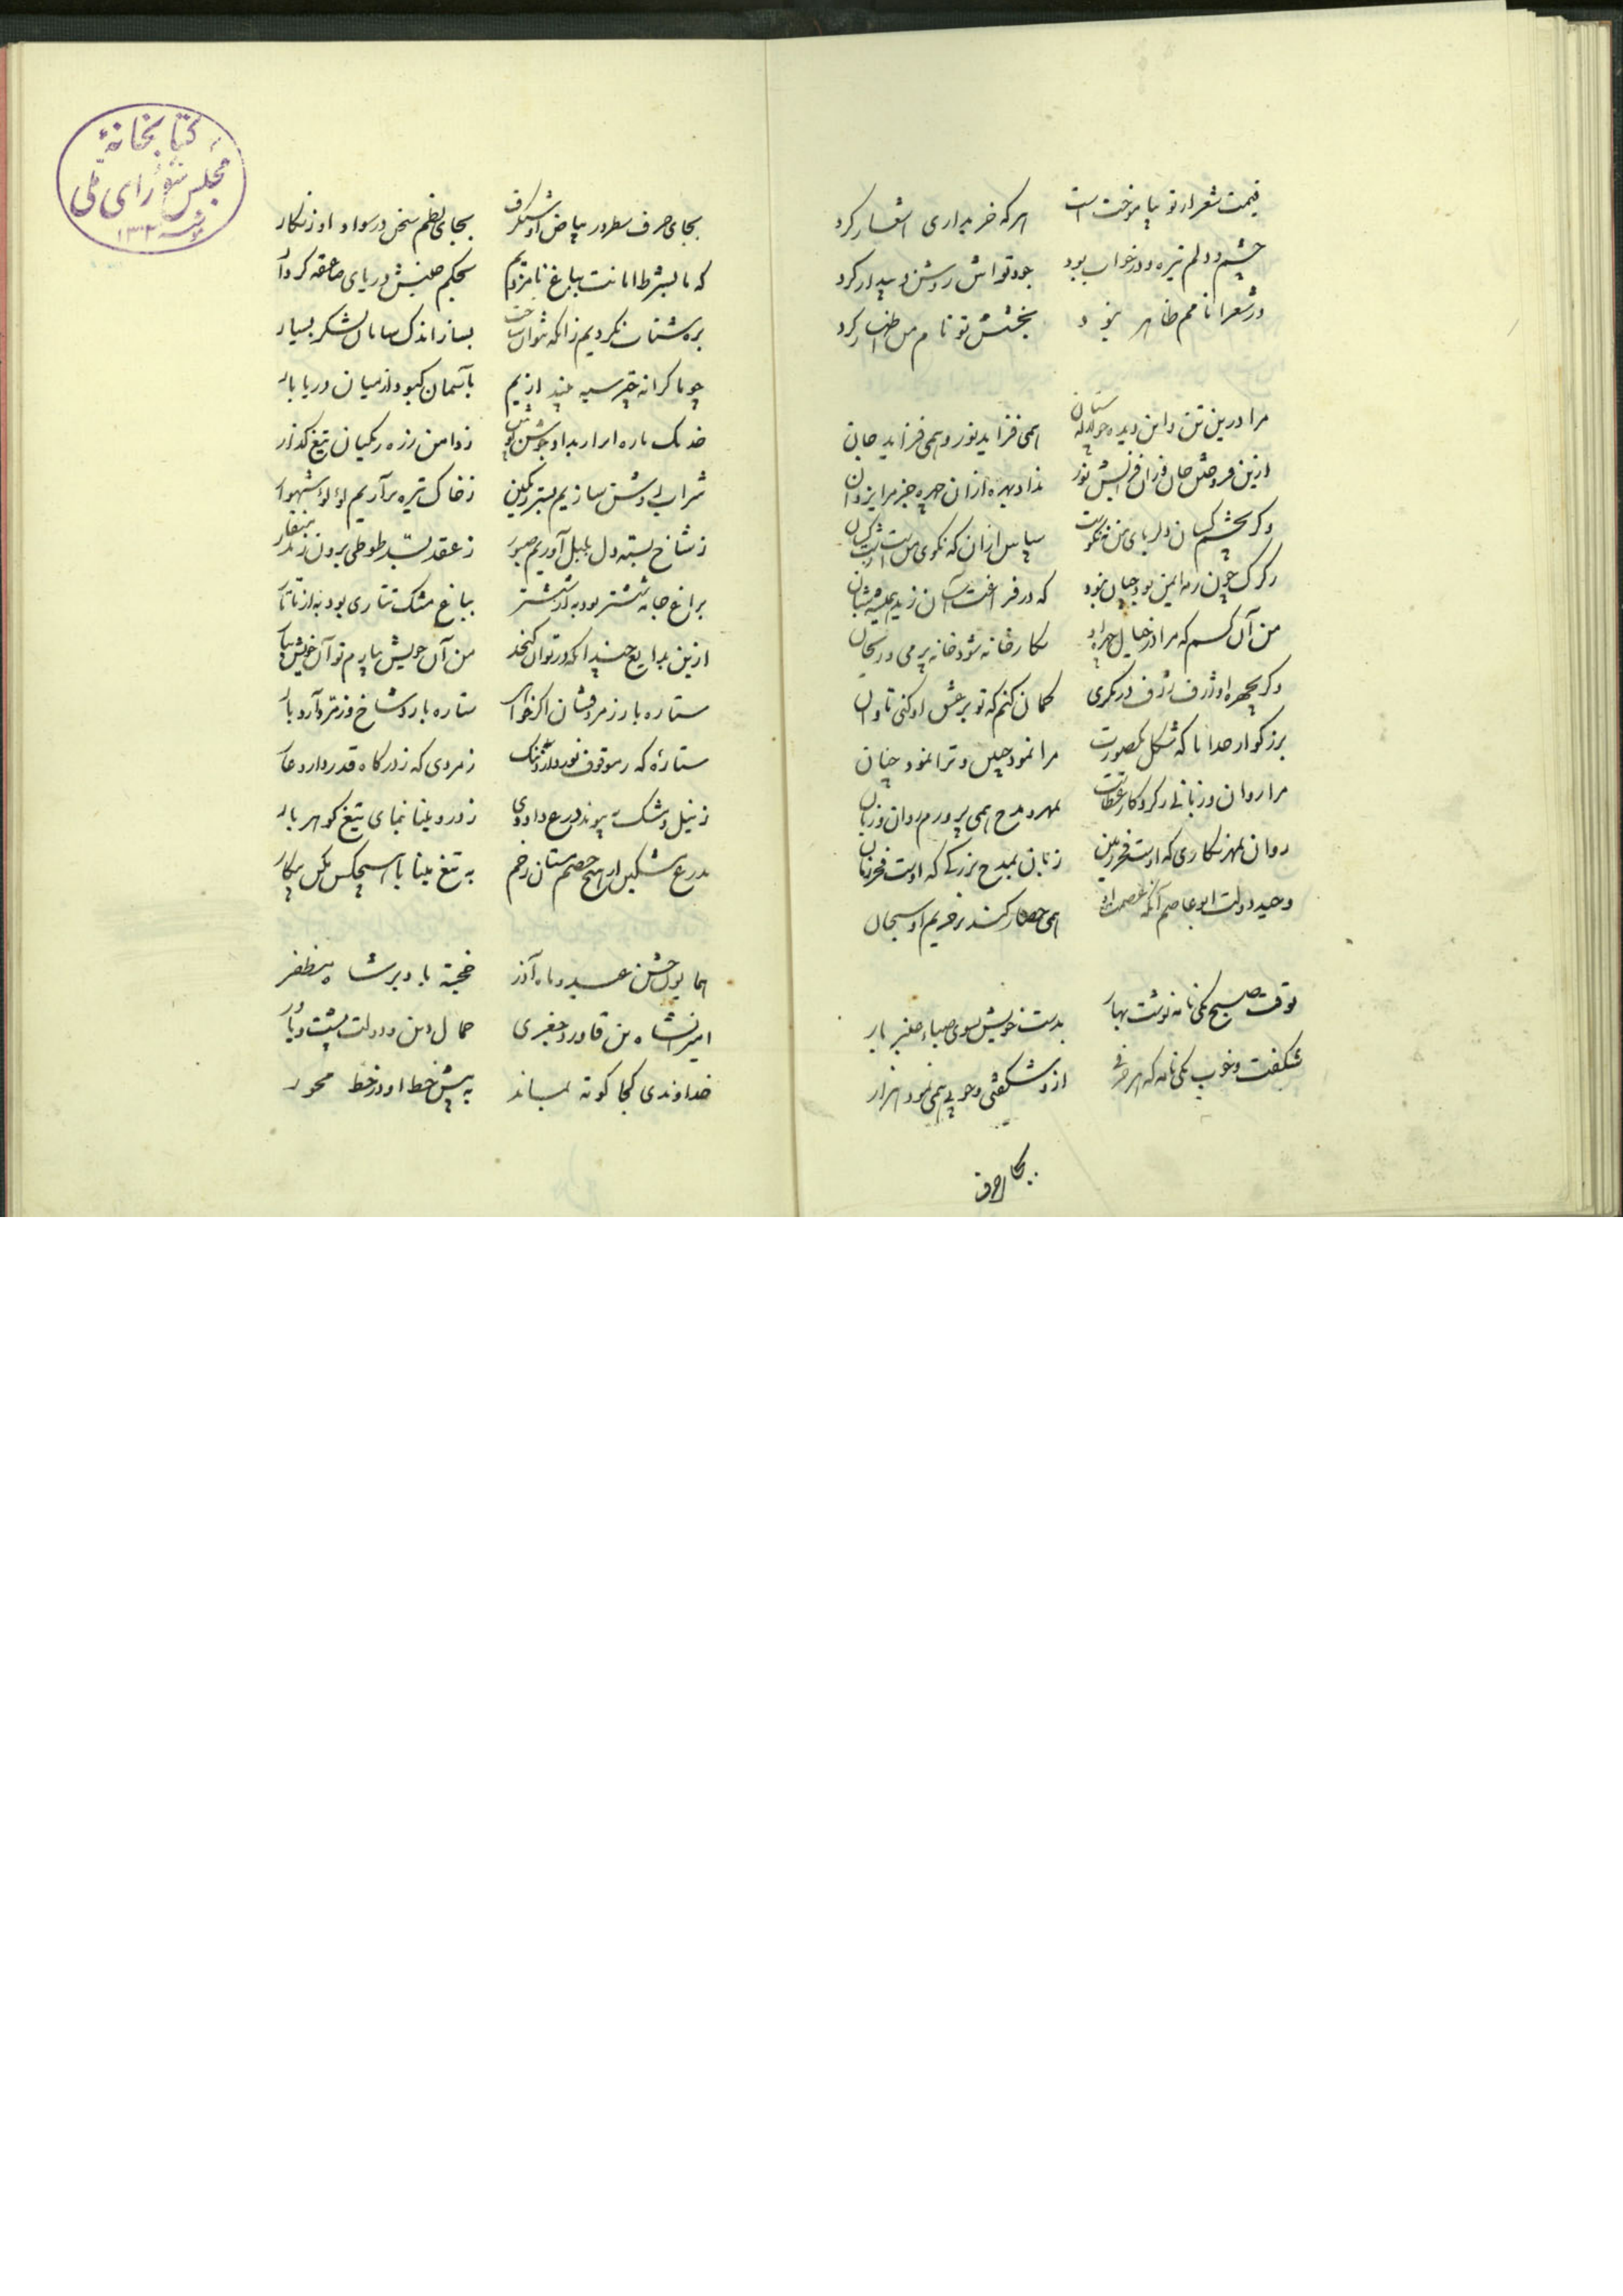 قیمت شعر از تو بیاموخت است هر که خریداری اشعار کرد
چشم و دلم تیره و در خواب بود جود تواش روشن و بیدار کرد
در شعرا نامم ظاهر نبود بخشش تو نام من اظهار کرد
مرا درین تن و این دیده همی فزاید نور و همی فزاید جان
ازین فروختن جان وزان نداد بهره ازان چهره جز مرا یزدان
وگر بچشم کسان دلربای من نه نکوست سپاس ازان که نکوی منست
زگرگ چون رمه ایمن بود چنان نبود که در فراغت آسان زید همیشه شبان
من آن کسم که مرا در خیال چهره او نگارخانه شود خانه پرمی و ریحان
وگر بچهره او ژرف ژرف در نگری گمان کنم که تو بر عشق او کنی تاوان
بزرگوار خدایا که شکل یکصورت مرا نمود چنین و ترا نمود چنان
مرا روان و زبانی ز کردگار عطاست بمهر و مدح همی پرورم روان و زبان
روان بمهر نگاری که اوست فخر زمین زبان بمدح بزرگی که اوست فخر زمان
وحید دولت ابوعاصم آنکه عصمت او همی حصار کند بر حریم او سبحان
بوقت صبح یکی نامه نوشت بهار بدست خویش بسوی صباء صنبر بار
شگفت و خوب یکی نامه که هر حرفی ازو شگفتی و خوبی همی نمود هزار
بجای حرف
کتابخانهٔ
مجلس شورای ملی
مؤسسه ۱۳۰۲
بجای حرف سطور در بیاض او شنگرف بجای نظم سخن در سواد او زنگار
که ما بشرط امانت بباغ نامزدیم بحکم جنبش دریای صاعقه کردار
بره شتاب نکردیم زانکه نتوان ساخت بساز اندک سامان لشکر بسیار
چو ما کرانه چتر سیه پدید آریم بآسمان کبود از میان دریا بار
خدنگ باره زدامن زره زنگیان تیغ گذار
شراب لب و شن سازیم بستر رنگین زخاک تیره برآریم لؤلؤ شهوار
زشاخ بسته دل بلبل آوریم صبور زعقد بسد طوطی برون زند منقار
براغ جامه ششتر بود به از ششتر بباغ مشک تتاری بود به از تاتار
ازین بدایع چندانکه در توان گنجد من آن خویش بیارم تو آن خویش بیار
ستاره بار و زمرد فشان اگر خواهی ستاره بارد شاخ و زمرد آرد بار
ستاره که زمردی که ز درگاه قدر دارد عار
ز نیل و مشک بپیوند درع داودی ز درو مینا بنمای تیغ گوهر بار
بدرع مشکین از هیچ خصم مستان زخم به تیغ مینا با هیچکس مکن پیکار
همایون جشن عید و ماه آذر خجسته باد بر شاه مظفر
امیرانشاه بن قاورد جغری جمال دین و دولت پشت و یاور
خداوندی کجا کوته بماند به پیش خط او در خط محور